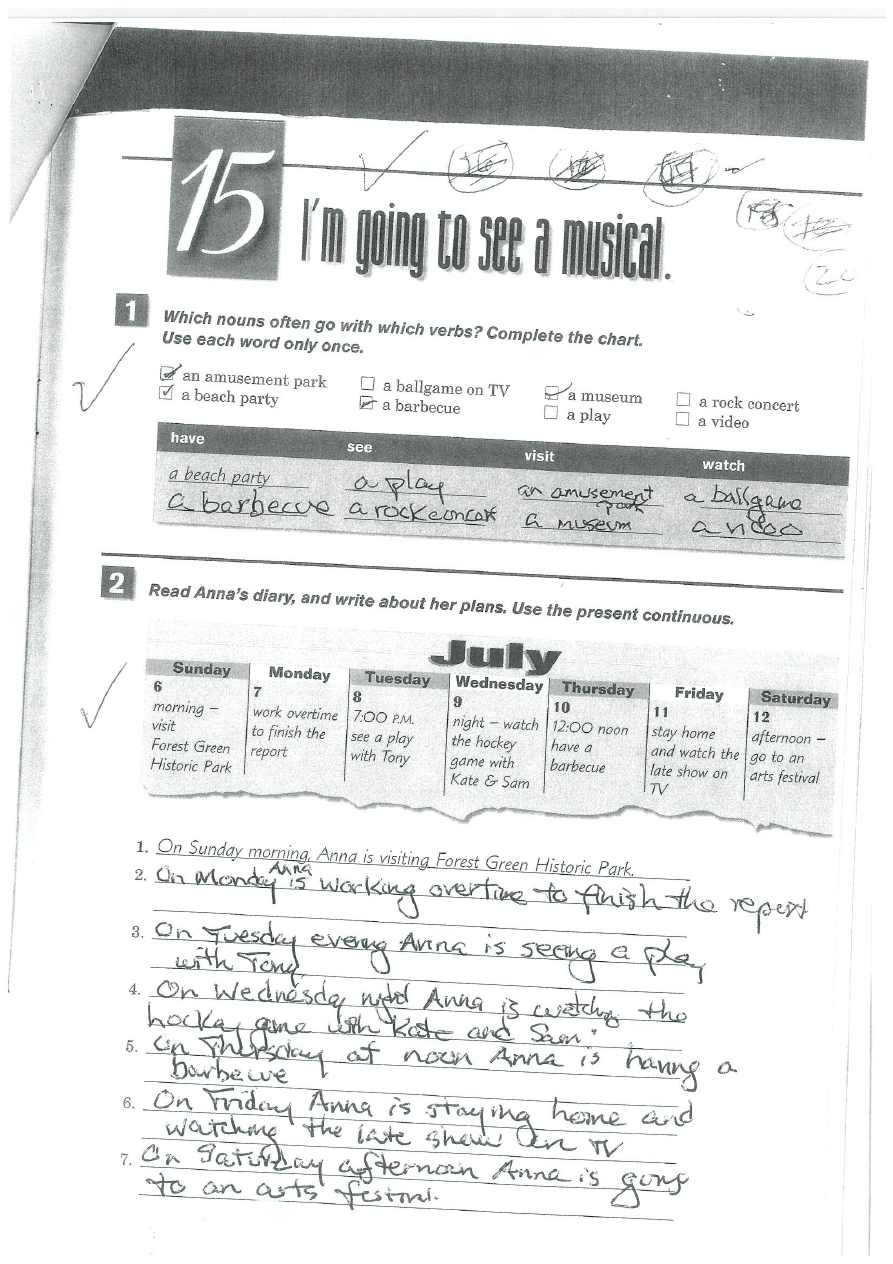 15
I'm going to see a musical.
1
Which nouns often go with which verbs? Complete the chart.
Use each word only once.
an amusement park a ballgame on TV a museum a rock concert
a beach party a barbecue a play a video
have see visit watch
a beach party a play an amusement park a ballgame
a barbecue a rock concert a museum
2
Read Anna's diary, and write about her plans. Use the present continuous.
July
Sunday
6
morning –
visit
Forest Green
Historic Park
Monday
7
work overtime
to finish the
report
Tuesday
8
7:00 P.M.
see a play
with Tony
Wednesday
9
night – watch
the hockey
game with
Kate & Sam
Thursday
10
12:00 noon
have a
barbecue
Friday
11
stay home
and watch the
late show on
TV
Saturday
12
afternoon –
go to an
arts festival
1. On Sunday morning, Anna is visiting Forest Green Historic Park.
Anna
2. On Monday is working overtime to finish the report
3. On Tuesday evening Anna is seeing a play
with Tony
4. On Wednesday night Anna is watching the
hockey game with Kate and Sam.
5. On Thursday at noon Anna is having a
barbecue
6. On Friday Anna is staying home and
watching the late show on TV
7. On Saturday afternoon Anna is going
to an arts